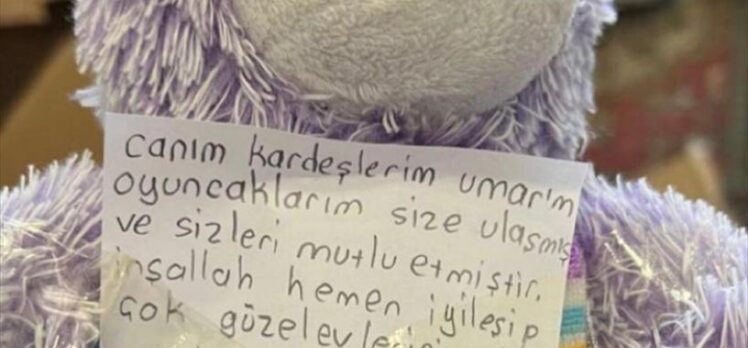 canım kardeşlerim umarım
oyuncaklarım size ulaşmış
ve sizleri mutlu etmiştir.
inşallah hemen iyileşip
çok güzel